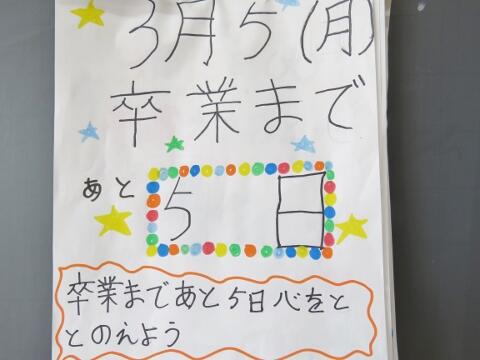 3月5(月)
卒業まで
あと 5 日
卒業まであと5日心をと
とのえよう